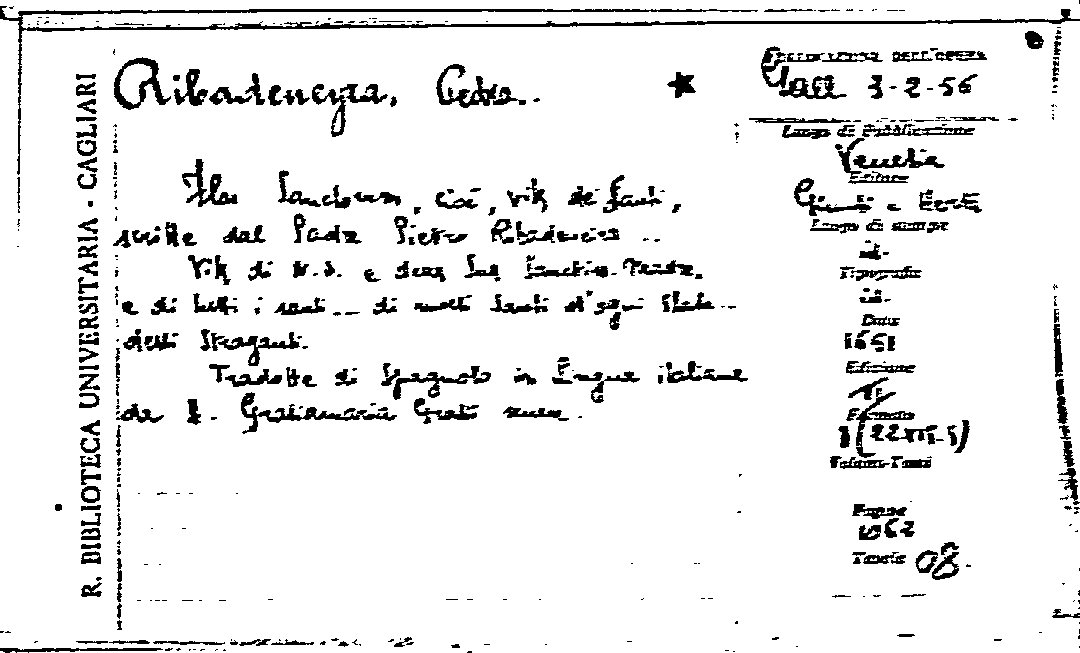 R. BIBLIOTECA UNIVERSITARIA - CAGLIARI
Ribadeneyra, Pedro..
Flos Sanctorum, cioè, vite de' santi,
scritte dal Padre Pietro Ribadeneira ..
Vite di N. S. e della Sua Santissima Madre,
e di tutti i santi ... di molti Santi d'ogni Stato ..
detti Stravaganti.
Tradotte di Spagnolo in Lingua italiana
da D. Gratiamaria Grati
COLLOCAZIONE DELL'OPERA
Gall 3-2-56
Luogo di Pubblicazione
Venetia
Editore
Luogo di stampa
id.
Tipografia
id.
Data
1651
Edizione
Formato
Volumi-Tomi
Pagine
1062
Tavole 08.